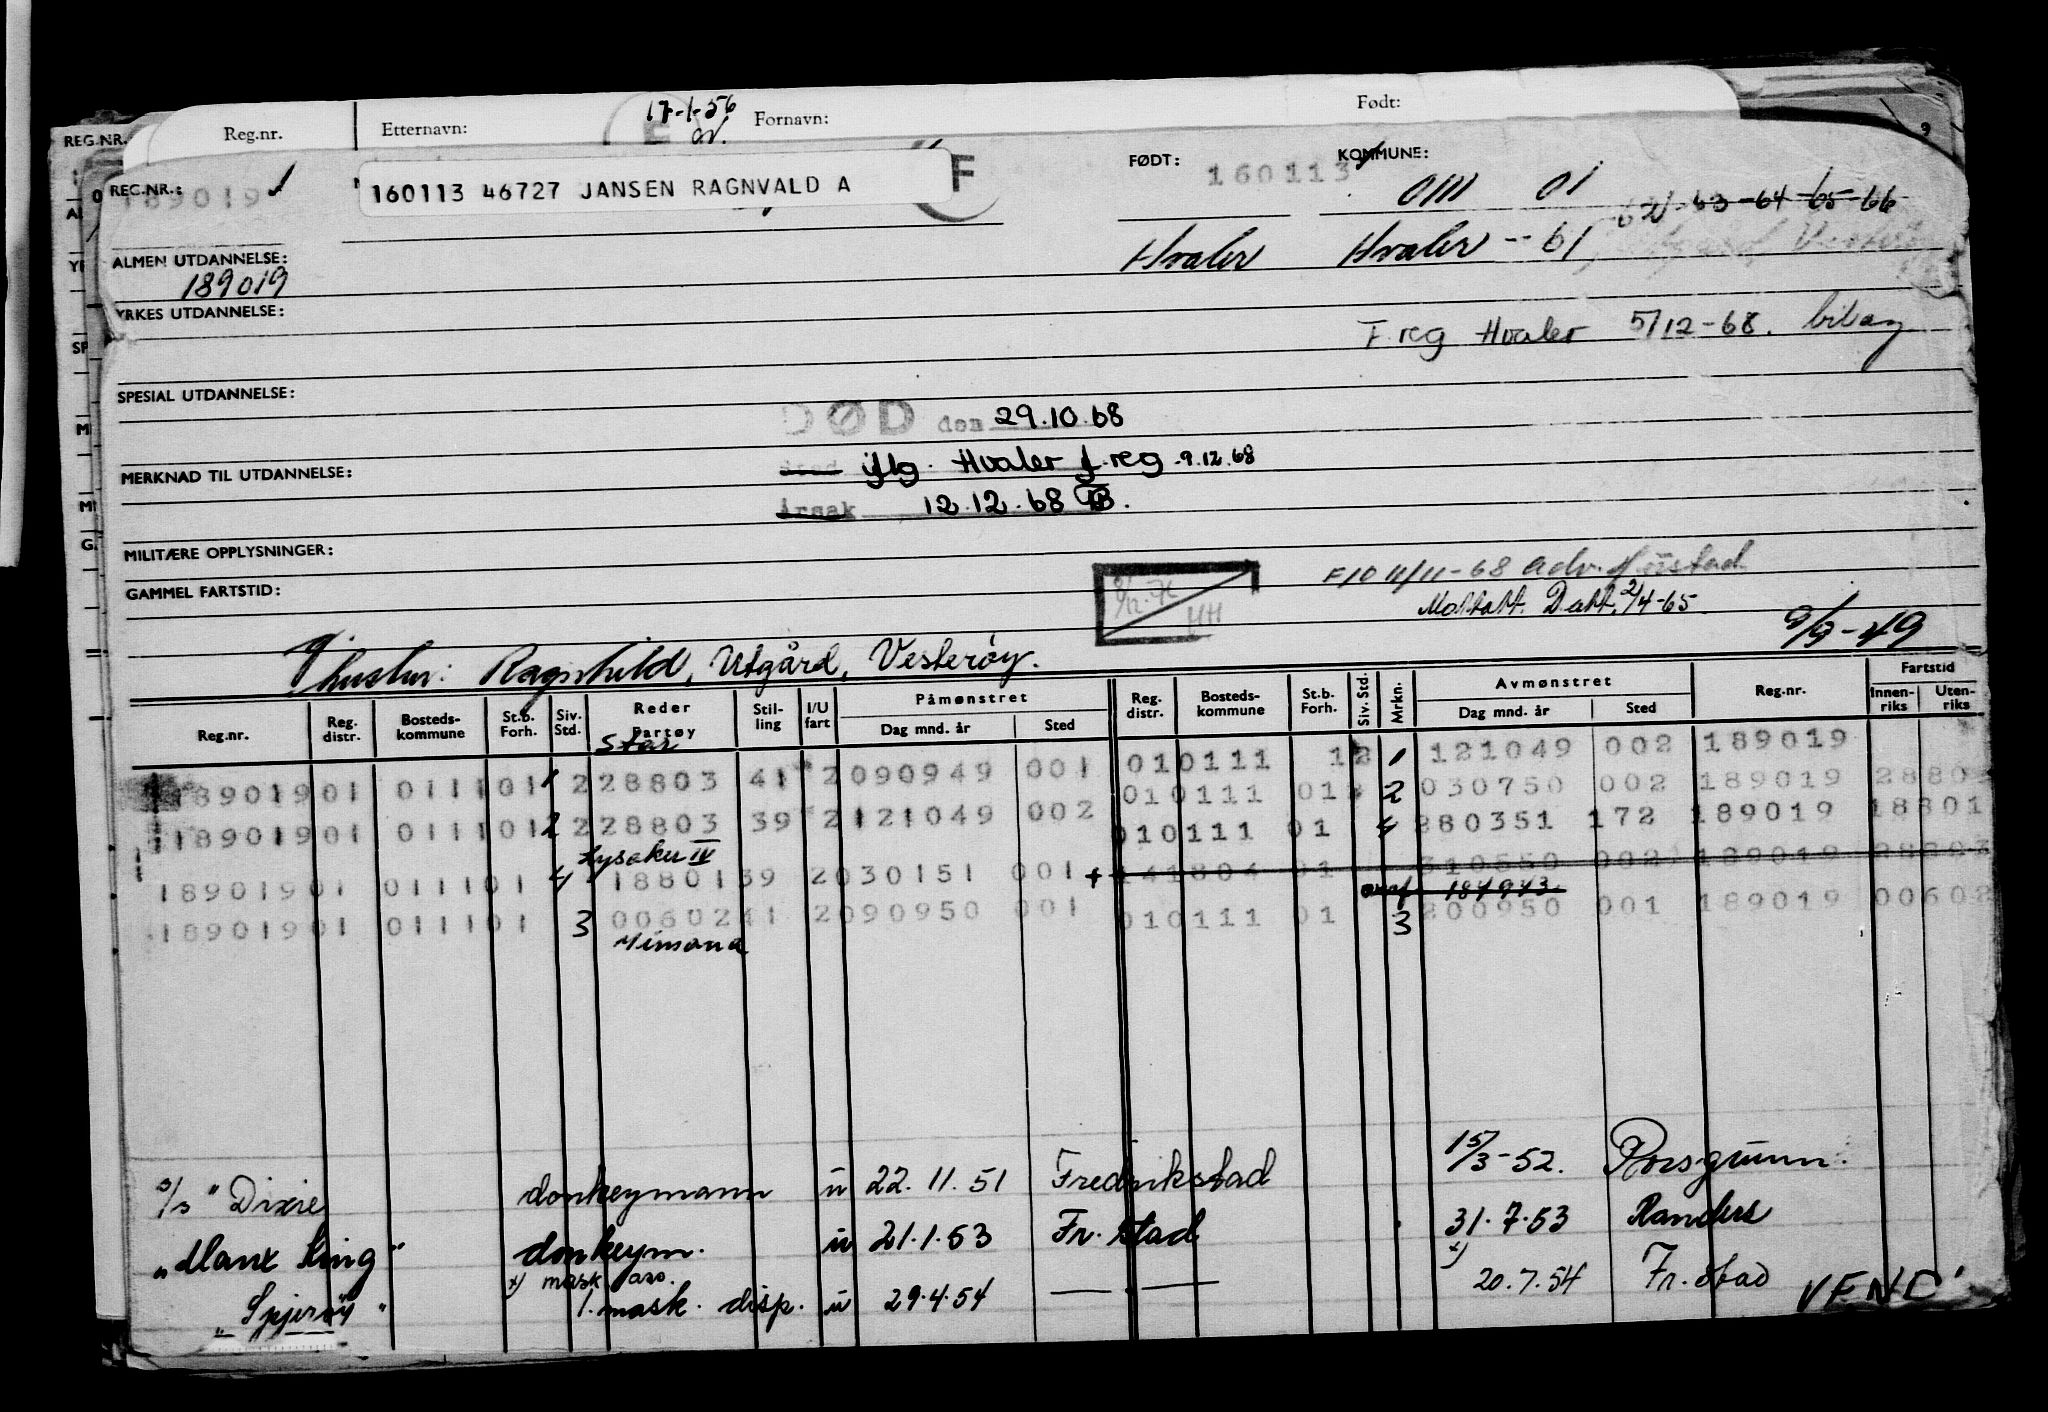 REG.NR. Reg.nr. Etternavn: 17-1-56 Fornavn: Født:
REG.NR.: 189019 160113 46727 JANSEN RAGNVALD A F FØDT: 160113 KOMMUNE: 0111 01
Hvaler Hvaler -- 61 62-63-64-65-66
ALMEN UTDANNELSE:
189019
YRKES UTDANNELSE:
F.reg Hvaler 5/12-68. bilag
SPESIAL UTDANNELSE:
DØD den 29.10.68
MERKNAD TIL UTDANNELSE: iflg. Hvaler f.reg 9.12.68
årsak 12.12.68
MILITÆRE OPPLYSNINGER:
F10 11/11-68 adv.
GAMMEL FARTSTID:
Mottatt Datt. 2/4-65
9/9-49
hustru: Ragnhild, Utgård, Vesterøy.
Reg.nr. Reg. distr. Bosteds-kommune St.b. Forh. Siv. Std. Reder Fartøy Stil-ling I/U fart Påmønstret Dag mnd. år Sted Reg. distr. Bosteds-kommune St.b. Forh. Siv. Std. Mrkn. Avmønstret Dag mnd. år Sted Reg.nr. Fartstid Innen-riks Uten-riks
Star
189019 01 0111 01 1 2 28803 41 2 090949 001 01 0111 1 2 1 121049 002 189019
189019 01 0111 01 2 2 28803 39 2 121049 002 01 0111 01 2 030750 002 189019 2880
Lysaker IV
189019 01 0111 01 4 18801 39 2 030151 001 01 0111 01 4 280351 172 189019 18801
141804 01 310550 002 189019 28803
184943
189019 01 0111 01 3 00602 41 2 090950 001 01 0111 01 3 200950 001 189019 00602
Vimona
S/S "Dixie donkeymann u 22.11.51 Fredrikstad 15/3-52. Porsgrunn.
"Manx King" donkeym. u 21.1.53 Fr.stad 31.7.53 Randers
x) mask. ass. x)
"Spjerøy" 1. mask. disp. u 29.4.54 — " — 20.7.54 Fr.stad VEND!